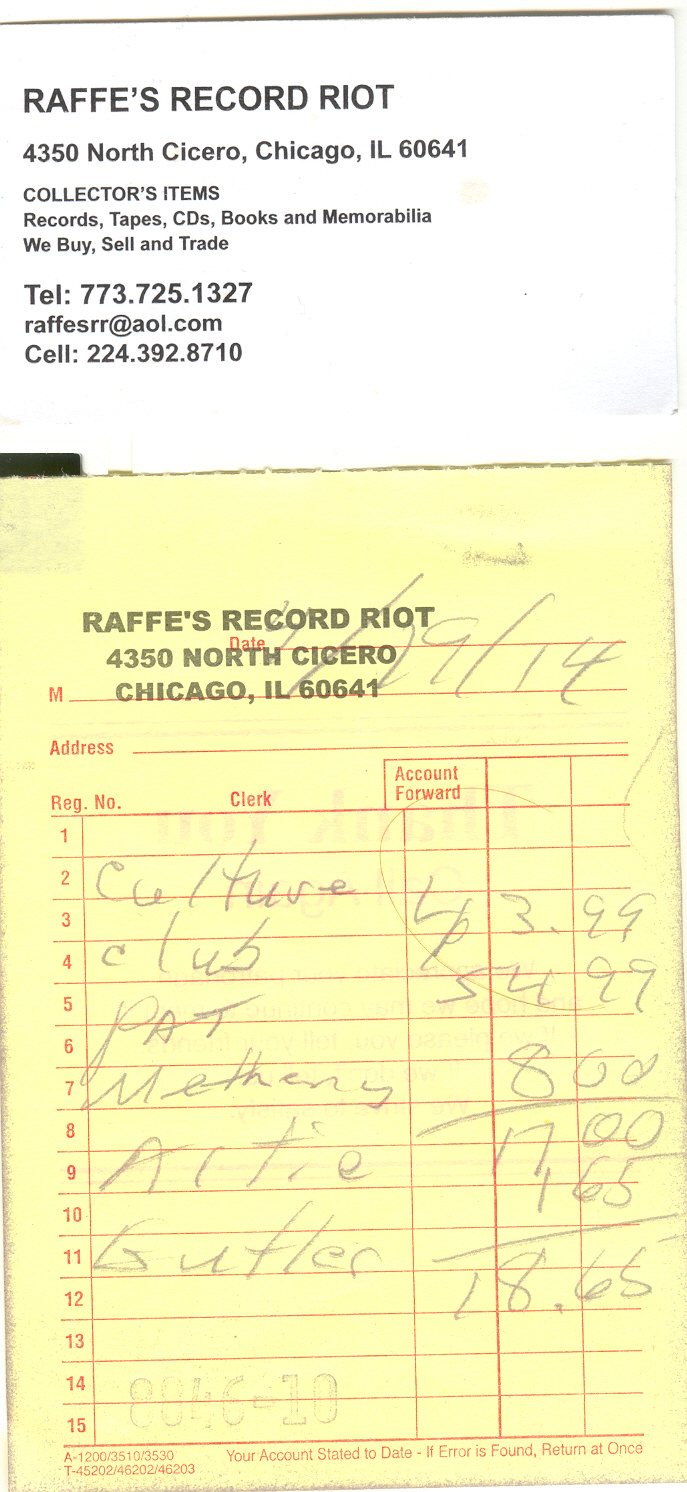 RAFFE'S RECORD RIOT
4350 North Cicero, Chicago, IL 60641
COLLECTOR'S ITEMS
Records, Tapes, CDs, Books and Memorabilia
We Buy, Sell and Trade
Tel: 773.725.1327
raffesrr@aol.com
Cell: 224.392.8710
RAFFE'S RECORD RIOT
Date /29/14
4350 NORTH CICERO
M CHICAGO, IL 60641
Address
Reg. No. Clerk Account Forward
1
2 Culture
3 Lp 3.99
4 Club
5 PAT 5 4 99
6
7 Metheny 8 00
8 17 00
9 Artie 1 65
10
11 Butler
12 18.65
13
14 8846-10
15
A-1200/3510/3530
T-45202/46202/46203
Your Account Stated to Date - If Error is Found, Return at Once